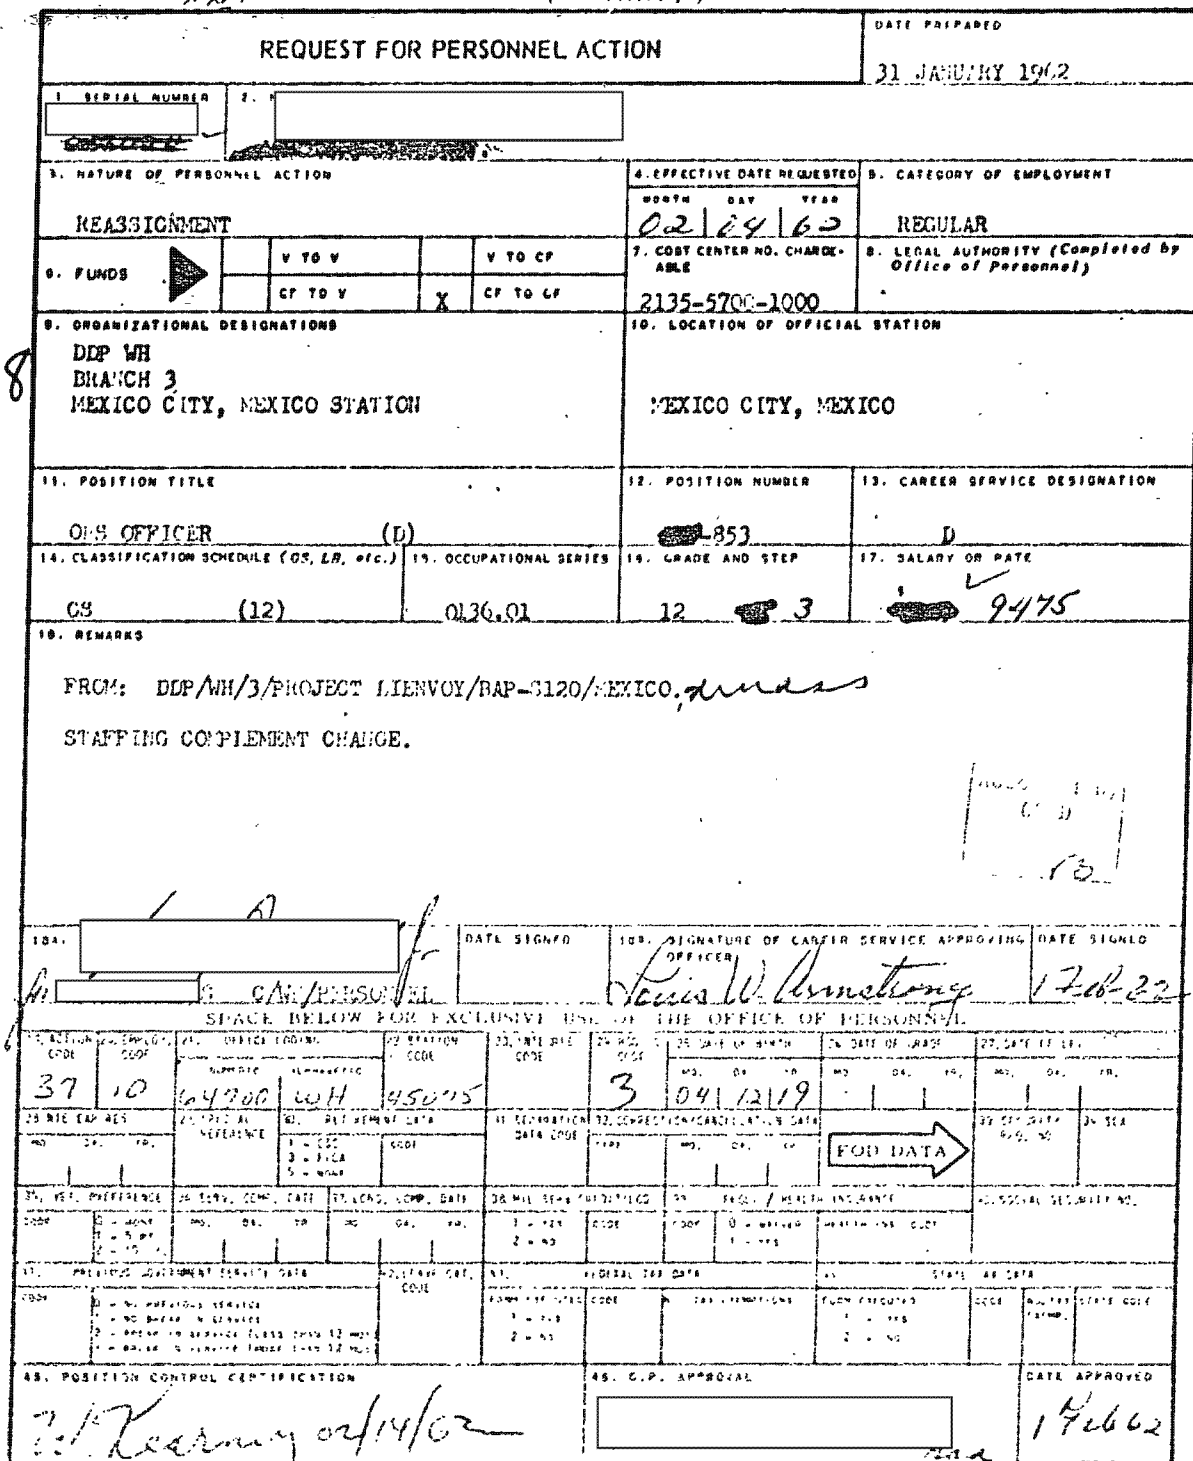 DATE PREPARED
REQUEST FOR PERSONNEL ACTION
31 JANUARY 1962
1. SERIAL NUMBER
2.
3. NATURE OF PERSONNEL ACTION
4. EFFECTIVE DATE REQUESTED
5. CATEGORY OF EMPLOYMENT
MONTH DAY YEAR
REASSIGNMENT
02 04 62
REGULAR
6. FUNDS
V TO V
V TO CF
CF TO V
X
CF TO CF
7. COST CENTER NO. CHARGE-
ABLE
2135-5700-1000
8. LEGAL AUTHORITY (Completed by
Office of Personnel)
9. ORGANIZATIONAL DESIGNATIONS
10. LOCATION OF OFFICIAL STATION
8
DDP WH
BRANCH 3
MEXICO CITY, MEXICO STATION
MEXICO CITY, MEXICO
11. POSITION TITLE
12. POSITION NUMBER
13. CAREER SERVICE DESIGNATION
OPS OFFICER (D)
-853
D
14. CLASSIFICATION SCHEDULE (GS, LB, etc.)
15. OCCUPATIONAL SERIES
16. GRADE AND STEP
17. SALARY OR RATE
GS (12)
0136.01
12 3
9475
18. REMARKS
FROM: DDP/WH/3/PROJECT LIENVOY/BAP-S120/MEXICO,
STAFFING COMPLEMENT CHANGE.
18A.
DATE SIGNED
18B. SIGNATURE OF CAREER SERVICE APPROVING
OFFICER
DATE SIGNED
C/WH/PERSONNEL
Louis W. Armstrong
SPACE BELOW FOR EXCLUSIVE USE OF THE OFFICE OF PERSONNEL
19. ACTION
CODE
20. EMPLOY.
CODE
21. OFFICE CODING
NUMERIC ALPHABETIC
22. STATION
CODE
23. INTEGREE
CODE
24. HDQ.
CODE
25. DATE OF BIRTH
MO. DA. YR.
26. DATE OF GRADE
MO. DA. YR.
27. DATE OF LEI
MO. DA. YR.
37
10
WH
45075
3
04 12 19
28. NTE EXPIRES
MO. DA. YR.
29. SPECIAL
REFERENCE
30. RETIREMENT DATA
1 - CSC
3 - FICA
5 - NONE
CODE
31. SEPARATION
DATA CODE
32. CORRECTION/CANCELLATION DATA
TYPE MO. DA. YR.
EOD DATA
33. SECURITY
REQ. NO.
34. SEX
35. VET. PREFERENCE
CODE
0 - NONE
1 - 5 PT.
2 - 10 PT.
36. SERV. COMP. DATE
MO. DA. YR.
37. LONG. COMP. DATE
MO. DA. YR.
38. MIL. SERV. CREDIT/LCD
1 - YES
2 - NO
CODE
39. FEGLI / HEALTH INSURANCE
CODE
0 - WAIVER
1 - YES
HEALTH INS. CODE
40. SOCIAL SECURITY NO.
41. PREVIOUS GOVERNMENT SERVICE DATA
CODE
0 - NO PREVIOUS SERVICE
1 - NO BREAK IN SERVICE
2 - BREAK IN SERVICE (LESS THAN 12 MOS)
3 - BREAK IN SERVICE (MORE THAN 12 MOS)
42. LEAVE CAT.
CODE
43. FEDERAL TAX DATA
FORM EXECUTED
1 - YES
2 - NO
CODE
NO. TAX EXEMPTIONS
44. STATE TAX DATA
FORM EXECUTED
1 - YES
2 - NO
CODE
STATE CODE
45. POSITION CONTROL CERTIFICATION
46. O.P. APPROVAL
DATE APPROVED
W. Kearney 02/14/62